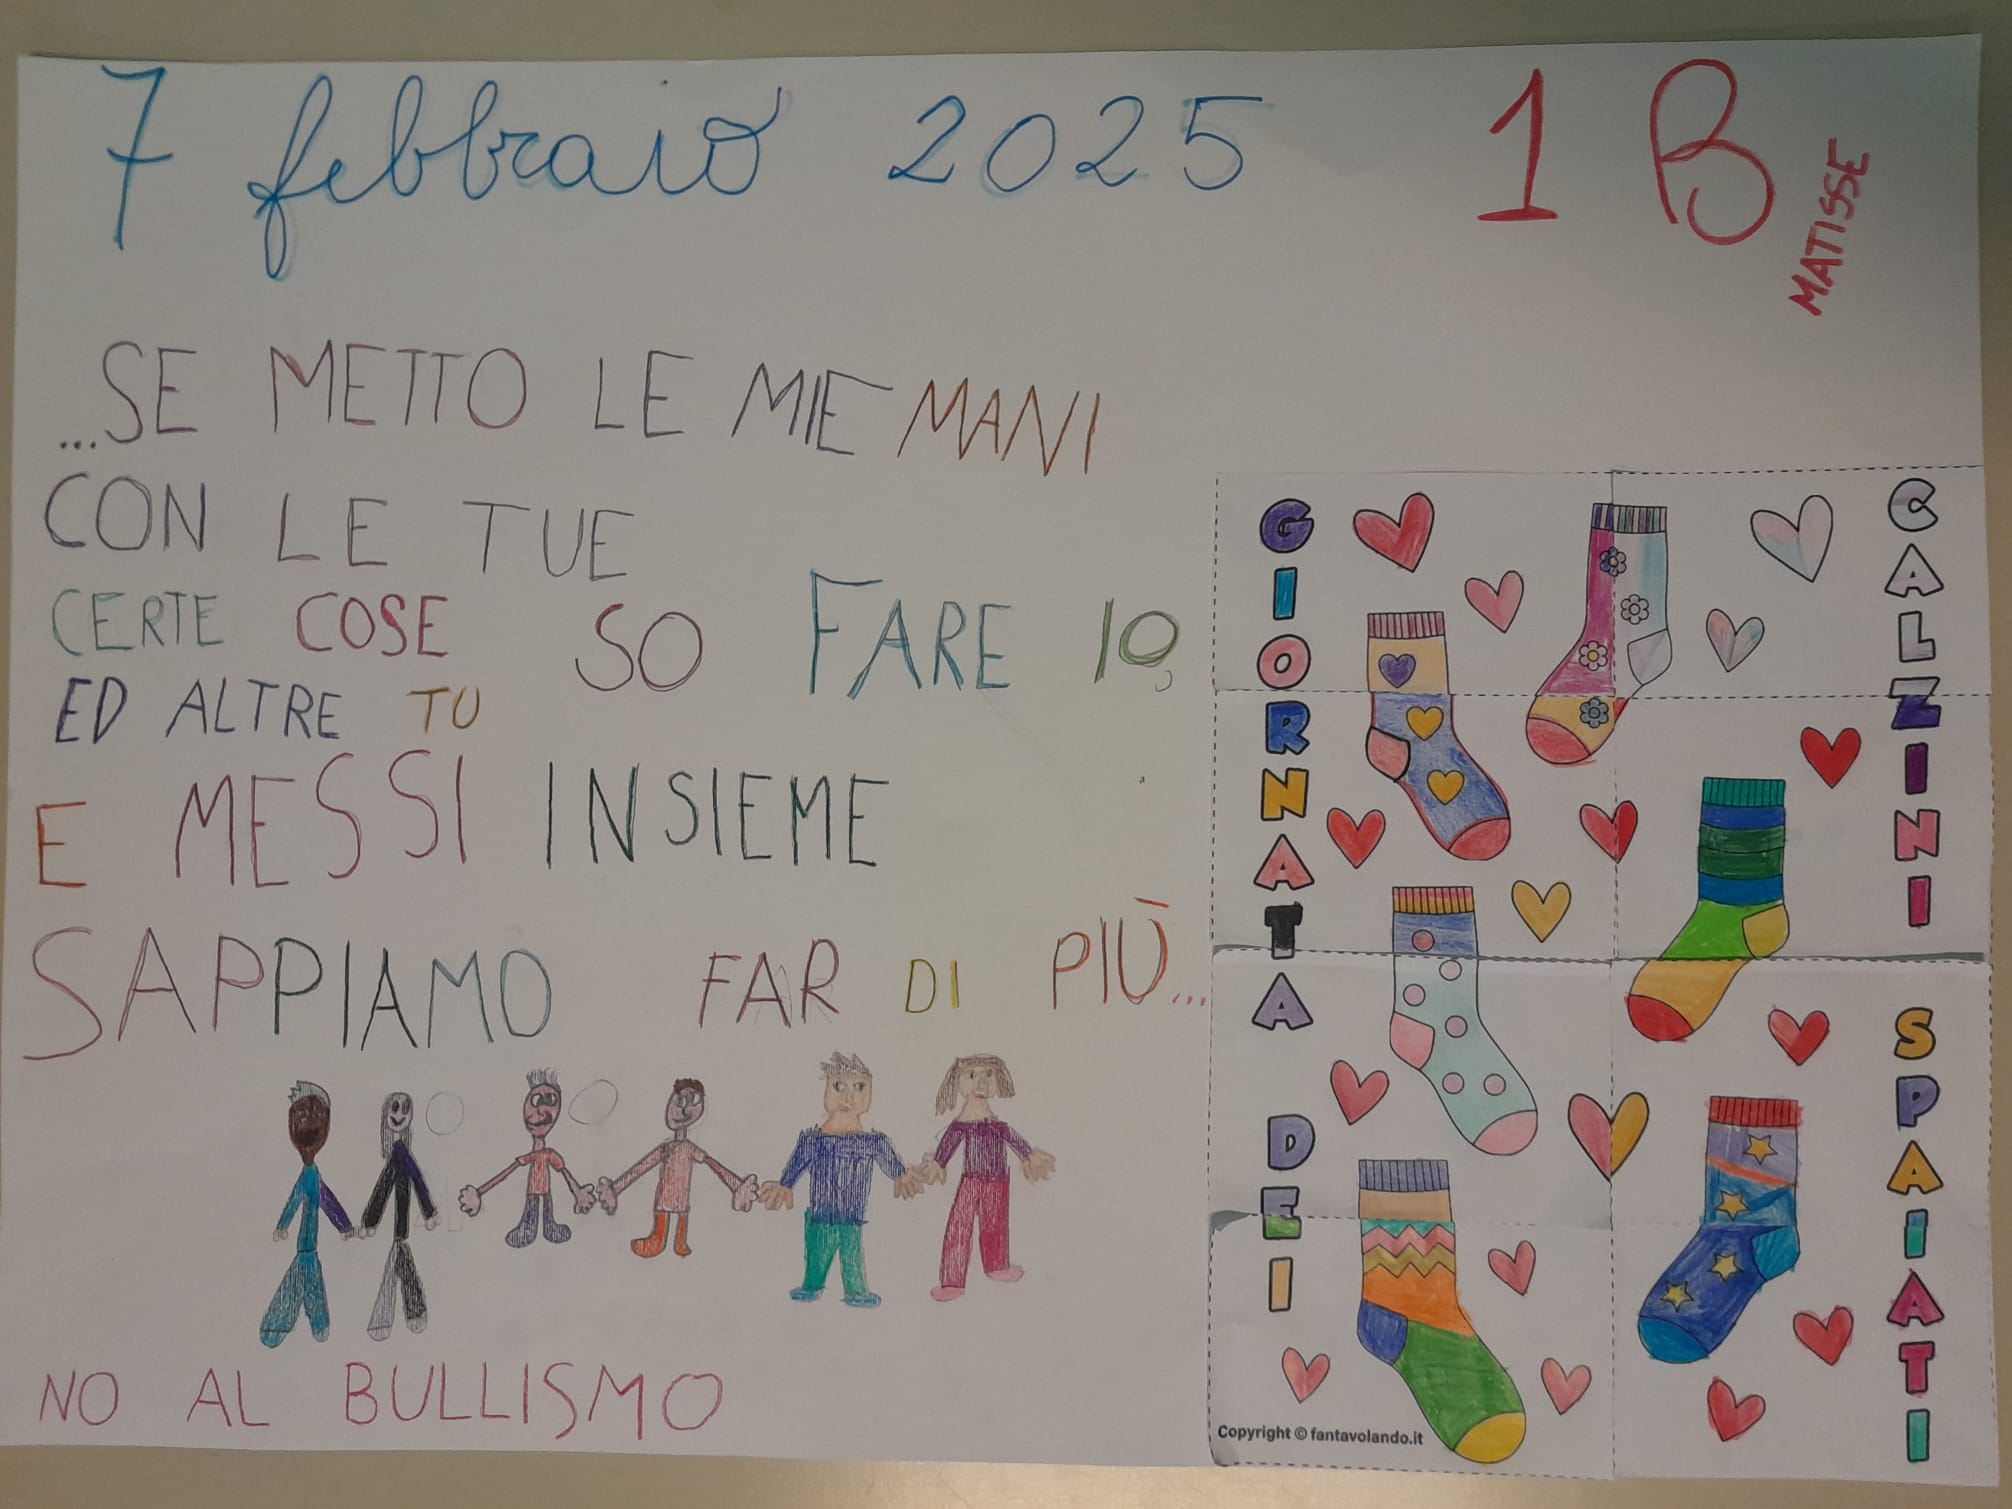 7 febbraio 2025
1 B
MATISSE
...SE METTO LE MIE MANI
CON LE TUE
CERTE COSE SO FARE IO,
ED ALTRE TU
E MESSI INSIEME
SAPPIAMO FAR DI PIÙ...
NO AL BULLISMO
GIORNATA DEI
CALZINI SPAIATI
Copyright © fantavolando.it